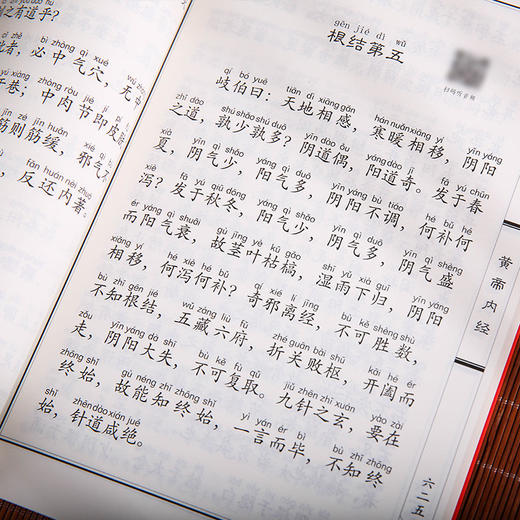 之有道乎?
bì zhòng qì xué
者，必中气穴，无
巷；中肉节即皮
筋则筋缓，邪气
fǎn huán nèi zhuó
，反还内著。
gēn jié dì wǔ
根结第五
扫码听音频
qí bó yuē tiān dì xiāng gǎn hán nuǎn xiāng yí yīn yáng
岐伯曰：天地相感，寒暖相移，阴阳
zhī dào shú shǎo shú duō yīn dào ǒu yáng dào jī fā yú chūn
之道，孰少孰多？阴道偶，阳道奇。发于春
xià yīn qì shǎo yáng qì duō yīn yáng bù tiáo hé bǔ hé
夏，阴气少，阳气多，阴阳不调，何补何
xiè fā yú qiū dōng yáng qì shǎo yīn qì duō yīn qì shèng
泻？发于秋冬，阳气少，阴气多，阴气盛
ér yáng qì shuāi gù jīng yè kū gǎo shī yǔ xià guī yīn yáng
而阳气衰，故茎叶枯槁，湿雨下归，阴阳
xiāng yí hé xiè hé bǔ qí xié lí jīng bù kě shèng shǔ
相移，何泻何补？奇邪离经，不可胜数，
bù zhī gēn jié wǔ zàng liù fǔ zhé guān bài shū kāi hé ér
不知根结，五藏六府，折关败枢，开阖而
zǒu yīn yáng dà shī bù kě fù qǔ jiǔ zhēn zhī xuán yào zài
走，阴阳大失，不可复取。九针之玄，要在
zhōng shǐ gù néng zhī zhōng shǐ yì yán ér bì bù zhī zhōng
终始，故能知终始，一言而毕，不知终
shǐ zhēn dào xián jué
始，针道咸绝。
黄帝内经
六二五